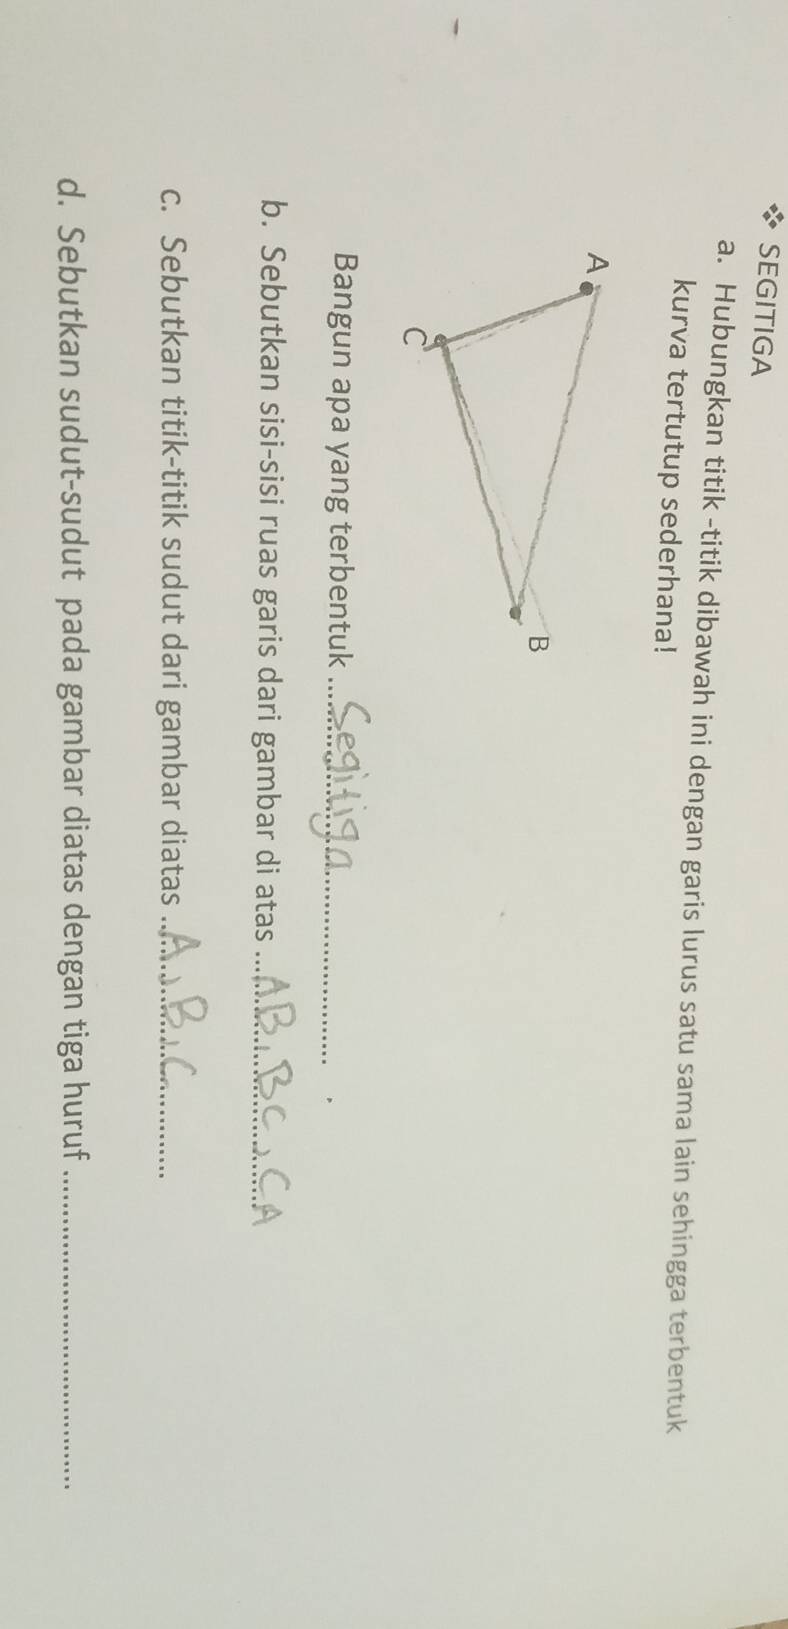 ❖ SEGITIGA
a. Hubungkan titik -titik dibawah ini dengan garis lurus satu sama lain sehingga terbentuk
kurva tertutup sederhana!
A
B
C
Bangun apa yang terbentuk ...Segitiga...
b. Sebutkan sisi-sisi ruas garis dari gambar di atas ...AB, BC, CA
c. Sebutkan titik-titik sudut dari gambar diatas ...A, B, C...
d. Sebutkan sudut-sudut pada gambar diatas dengan tiga huruf ...